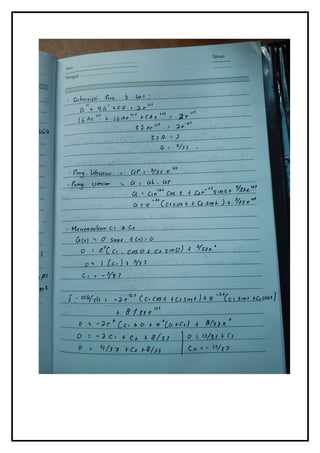 Hari
Tanggal :
Tahun
- Substitusi Pers. 2 ke 1 :
a'' + 4a' + 5a = 2e⁴ᵗ
16Ae⁴ᵗ + 16Ae⁴ᵗ + 5Ae⁴ᵗ = 2e⁴ᵗ
37Ae⁴ᵗ = 2e⁴ᵗ
37A = 2
A = 2/37 .
- Peny. : QP = 2/37 e⁴ᵗ
- Peny. umum : Q = Qh + QP
Q = C₁e⁻²ᵗ cos t + C₂e⁻²ᵗ sin t + 2/37e⁴ᵗ
Q = e⁻²ᵗ (C₁ cos t + C₂ sin t) + 2/37e⁴ᵗ
- Menentukan C₁ & C₂
Q(0) = 0 saat t(0) = 0
0 = e⁰(C₁ . cos 0 + C₂ sin 0) + 2/37e⁰
0 = 1 (C₁) + 2/37
C₁ = -2/37
I = dQ/dt = -2e⁻²ᵗ (C₁ cos t + C₂ sin t) + e⁻²ᵗ (C₁ sin t + C₂ cos t)
+ 8/37e⁴ᵗ
0 = -2e⁰ (C₁ + 0 + e⁰(0 + C₂) + 8/37e⁰
0 = -2 C₁ + C₂ + 8/37 | 0 = 12/37 + C₂
0 = 4/37 + C₂ + 8/37 | C₂ = - 12/37